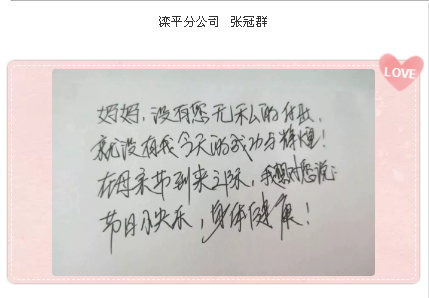 滦平分公司 张冠群
LOVE
妈妈，没有您无私的付出，
就没有我今天的成功与辉煌！
在母亲节到来之际，我想对您说：
节日快乐，身体健康！